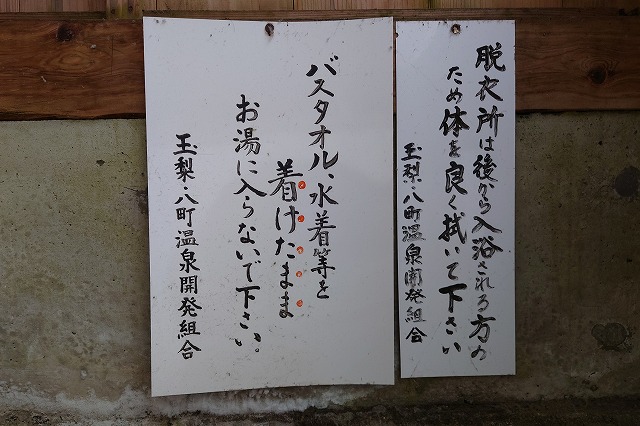 脱衣所は後から入浴される方の
ため体を良く拭いて下さい
玉梨・八町温泉開発組合
バスタオル、水着等を
着けたまま
お湯に入らないで下さい。
玉梨・八町温泉開発組合